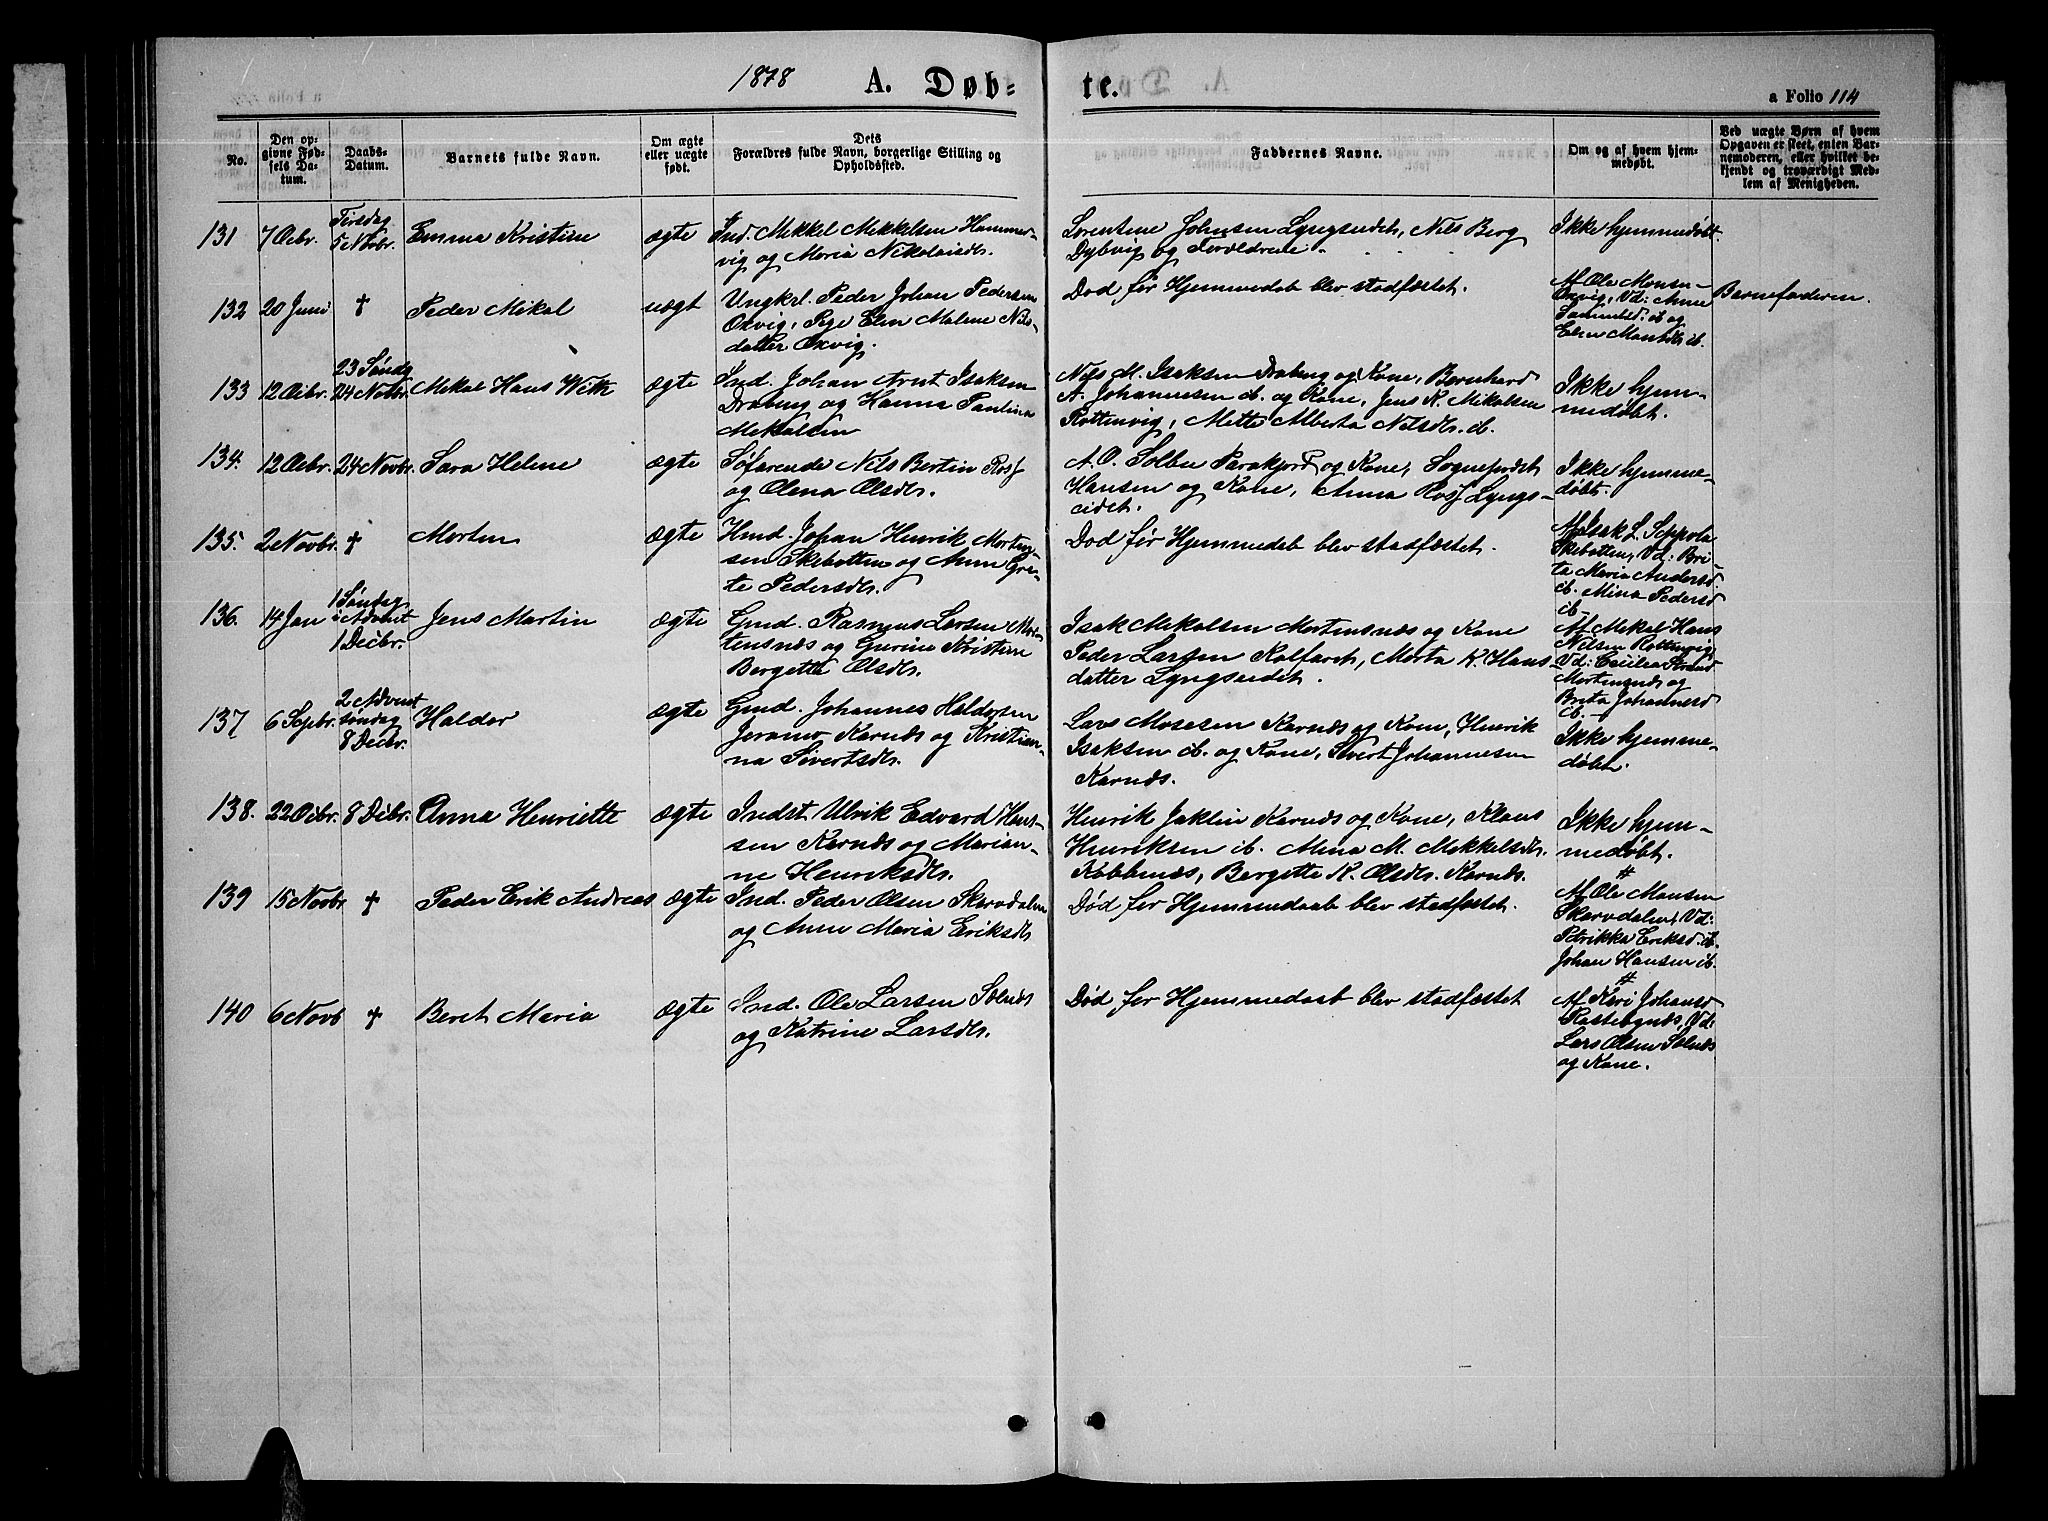 1878 A. Døb=
te.
a Folio 114
No.
Den op-
givne Fød-
sels Da-
tum.
Daabs-
Datum.
Barnets fulde Navn.
Om ægte
eller uægte
født.
Dets
Forældres fulde Navn, borgerlige Stilling og
Opholdssted.
Faddernes Navne.
Om og af hvem hjem-
medøbt.
Ved uægte Børn af hvem
Opgaven er skeet, enten Bar-
nemoderen, eller hvilket be-
kjendt og troværdigt Med-
lem af Menigheden.
131
7 Octbr.
Tirsdag
5 Novbr.
Emma Kristine
ægte
Ind. Mekkel Mekkelsen Hammer-
vig og Maria Nikolaisdr.
Lorentine Johnsen Lyngseidet, Nils Berg
Dybvig og Forældrene.
Ikke hjemmedøbt.
132
20 Juni
†
Peder Mikal
uægt
Ungkrl. Peder Johan Pedersen
Oxvig, Pige Elen Malene Nils-
datter Oxvig.
Død før Hjemmedaab blev stadfæstet.
Af Ole Monsen
Oxvig, Vd: Anne
Sammelsd: ib og
Elen Monsdr ib.
Barnefaderen.
133
12 Octbr.
23 Søndg
24 Novbr.
Mikal Hans Wilh
ægte
Ind. Johan Arnt Isaksen
Draberg og Hanna Paulina
Mekalsen
Nils M. Isaksen Draberg og Kone, Bernhard
A. Johannesen ib. og Kone, Jens K. Mikalsen
Rottenvig, Mette Alberta Nilsdr. ib.
Ikke hjem-
medøbt.
134.
12 Octbr.
24 Novbr.
Sara Helene
ægte
Søfarende Nils Bertin Ross
og Olena Olsdr.
A. O. Solbu Parakjord og Kone, Sognepræst
Hansen og Kone, Anna Ross Lyngs-
eidet.
Ikke hjemme-
døbt.
135.
2 Novbr.
†
Morten
ægte
Hmd. Johan Henrik Morten-
sen Skibotten og Anne Gre-
te Pedersdr.
Død før Hjemmedab blev stadfæstet.
Af Isak L. Seppola
Skibotten, Vd: Bri-
ta Maria Andersd
ib. Mina Pedersd
ib.
136.
14 Jan
1 Søndag
i Advent
1 Decbr.
Jens Martin
ægte
Gmd. Rasmus Larsen Mor-
tensnæs og Gurine Kristine
Bergette Olsdr.
Isak Mekalsen Mortensnæs og Kone
Peder Larsen Kalfaret, Marta K. Hans-
datter Lyngseidet.
Af Mekal Hans
Nilsen Rottenvig,
Vd: Cecilia Strand
Mortensnæs og
Brita Johannesd
ib.
137
6 Sepbr.
2 Advent
søndag
8 Decbr.
Haldor
ægte
Gmd. Johannes Haldorsen
Jeramo Karnæs og Kristian-
na Sivertsdr.
Lars Mosesen Karnæs og Kone, Henrik
Isaksen ib. og Kone, Sivert Johannesen
Karnæs.
Ikke hjemme-
døbt.
138.
22 Octbr.
8 Decbr.
Anna Henriette
ægte
Indst. Ulrik Edvard Han-
sen Karnæs og Marian-
ne Henriksdr.
Henrik Jaklin Karnæs og Kone, Klaus
Henriksen ib. Mina M. Mekkelsdr.
Kobbenæs, Bergette K. Olsdr. Karnæs.
Ikke hjem-
medøbt.
139
15 Novbr
†
Peder Erik Andreas
ægte
Ind. Peder Olsen Skarvdalen
og Anne Maria Eriksdr
Død før Hjemmedaab blev stadfæstet.
#
Af Ole Monsen
Skarvdalen, Vd:
Petrikka Eriksd. ib.
Johan Hansen ib.
140
6 Novb
†
Beret Maria
ægte
Ind. Ole Larsen Solnæs
og Katrine Larsdr.
Død før Hjemmedaab blev stadfæstet
#
Af Kari Johansd
Rastebynæs, Vd:
Lars Olsen Solnæs
og Kone.